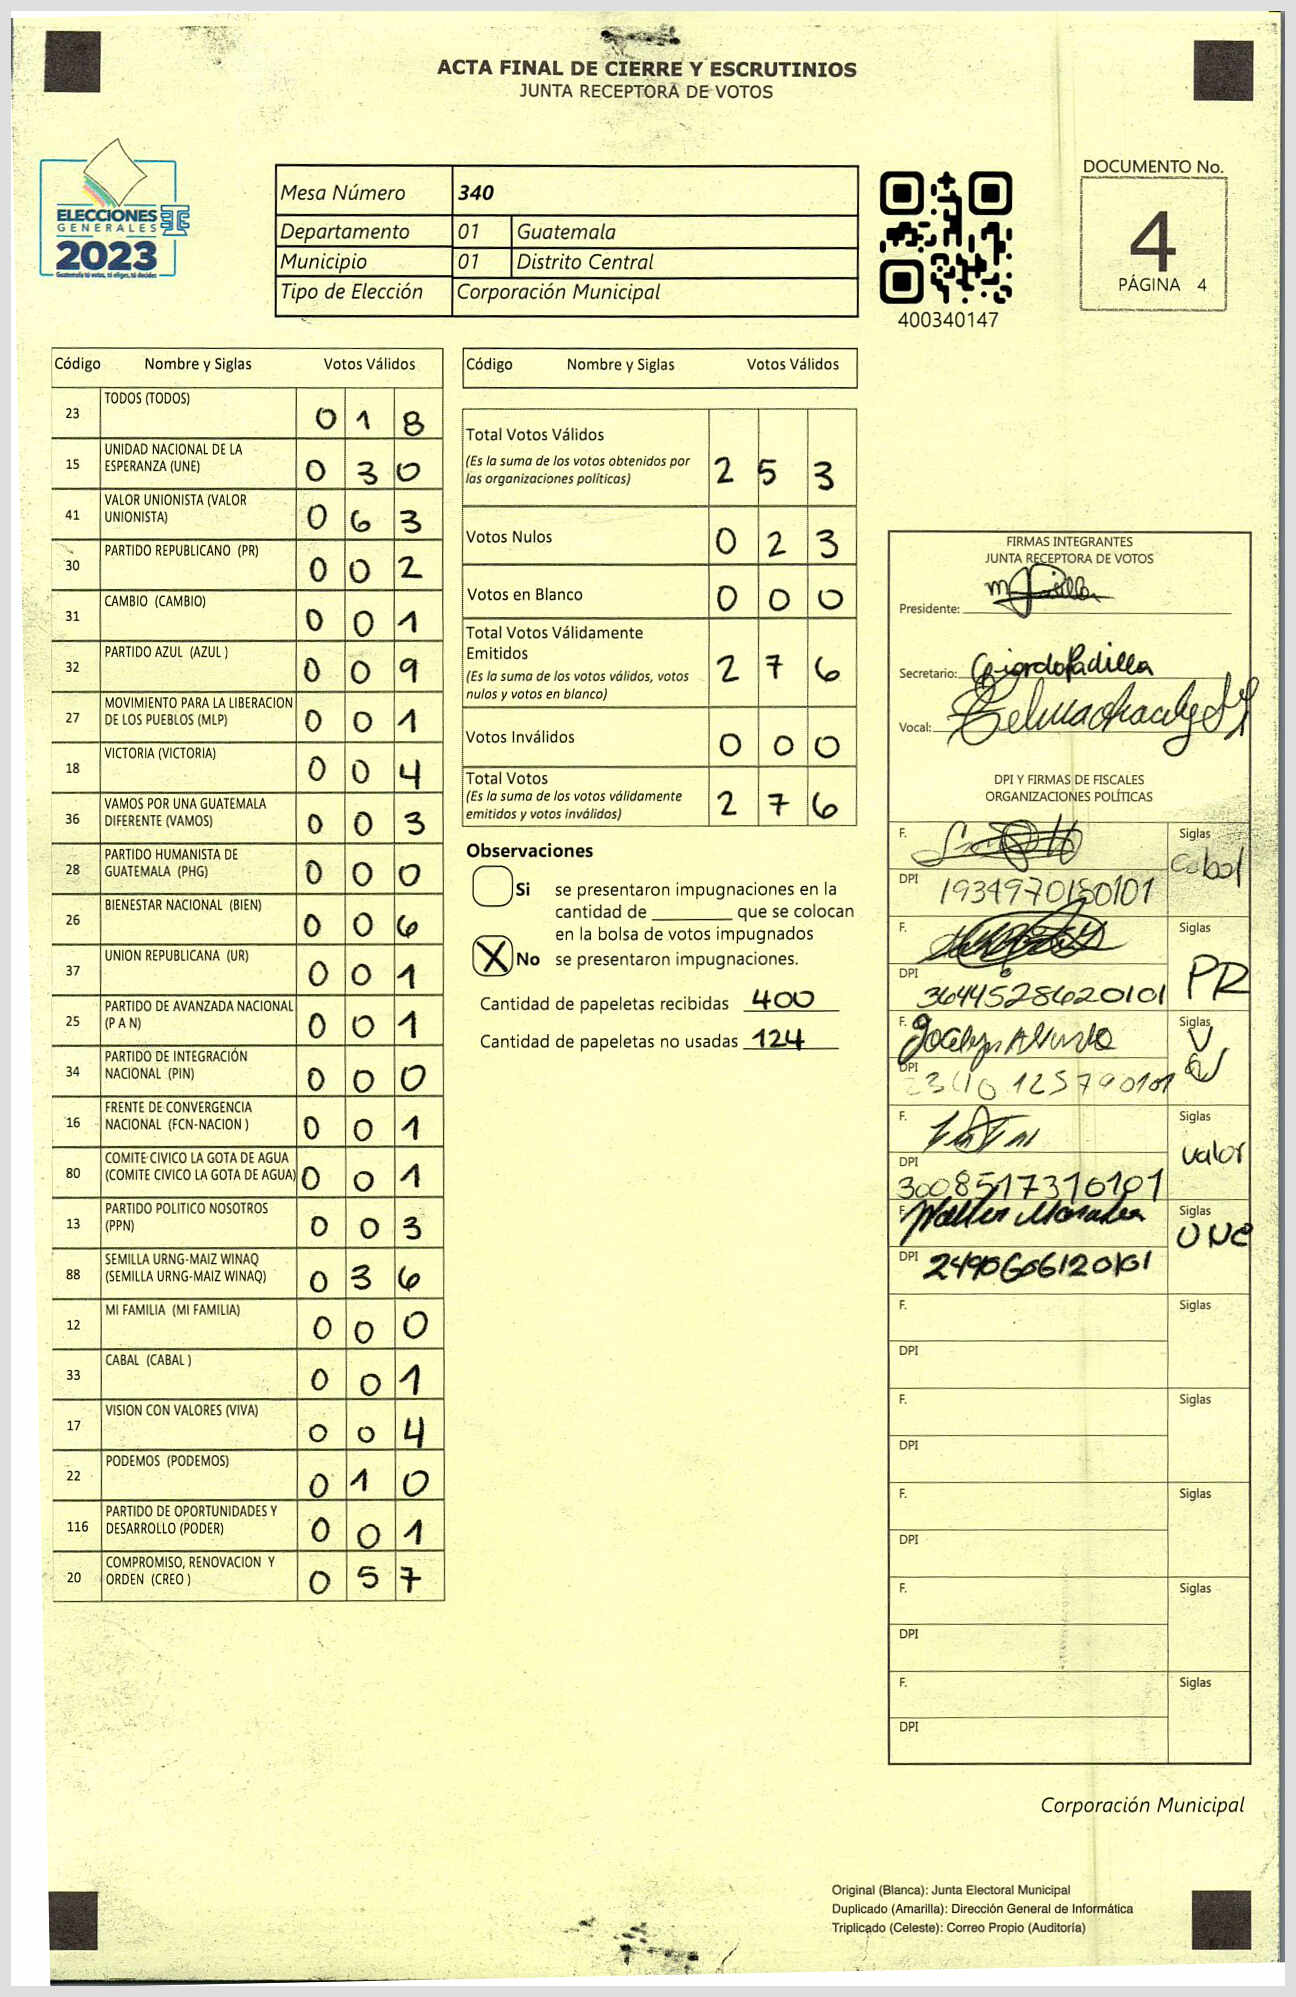 ACTA FINAL DE CIERRE Y ESCRUTINIOS
JUNTA RECEPTORA DE VOTOS
ELECCIONES
GENERALES
2023
Guatemala tú votas, tú eliges, tú decides
Mesa Número 340
Departamento 01 Guatemala
Municipio 01 Distrito Central
Tipo de Elección Corporación Municipal
400340147
DOCUMENTO No.
4
PÁGINA 4
Código Nombre y Siglas Votos Válidos
23 TODOS (TODOS) 0 1 8
15 UNIDAD NACIONAL DE LA
ESPERANZA (UNE) 0 3 0
41 VALOR UNIONISTA (VALOR
UNIONISTA) 0 6 3
30 PARTIDO REPUBLICANO (PR) 0 0 2
31 CAMBIO (CAMBIO) 0 0 1
32 PARTIDO AZUL (AZUL ) 0 0 9
27 MOVIMIENTO PARA LA LIBERACION
DE LOS PUEBLOS (MLP) 0 0 1
18 VICTORIA (VICTORIA) 0 0 4
36 VAMOS POR UNA GUATEMALA
DIFERENTE (VAMOS) 0 0 3
28 PARTIDO HUMANISTA DE
GUATEMALA (PHG) 0 0 0
26 BIENESTAR NACIONAL (BIEN) 0 0 6
37 UNION REPUBLICANA (UR) 0 0 1
25 PARTIDO DE AVANZADA NACIONAL
(P A N) 0 0 1
34 PARTIDO DE INTEGRACIÓN
NACIONAL (PIN) 0 0 0
16 FRENTE DE CONVERGENCIA
NACIONAL (FCN-NACION ) 0 0 1
80 COMITE CIVICO LA GOTA DE AGUA
(COMITE CIVICO LA GOTA DE AGUA) 0 0 1
13 PARTIDO POLITICO NOSOTROS
(PPN) 0 0 3
88 SEMILLA URNG-MAIZ WINAQ
(SEMILLA URNG-MAIZ WINAQ) 0 3 6
12 MI FAMILIA (MI FAMILIA) 0 0 0
33 CABAL (CABAL ) 0 0 1
17 VISION CON VALORES (VIVA) 0 0 4
22 PODEMOS (PODEMOS) 0 1 0
116 PARTIDO DE OPORTUNIDADES Y
DESARROLLO (PODER) 0 0 1
20 COMPROMISO, RENOVACION Y
ORDEN (CREO ) 0 5 7
Código Nombre y Siglas Votos Válidos
Total Votos Válidos
(Es la suma de los votos obtenidos por
las organizaciones políticas) 2 5 3
Votos Nulos 0 2 3
Votos en Blanco 0 0 0
Total Votos Válidamente
Emitidos
(Es la suma de los votos válidos, votos
nulos y votos en blanco) 2 7 6
Votos Inválidos 0 0 0
Total Votos
(Es la suma de los votos válidamente
emitidos y votos inválidos) 2 7 6
Observaciones
Si se presentaron impugnaciones en la
cantidad de ________ que se colocan
en la bolsa de votos impugnados
X No se presentaron impugnaciones.
Cantidad de papeletas recibidas 400
Cantidad de papeletas no usadas 124
FIRMAS INTEGRANTES
JUNTA RECEPTORA DE VOTOS
Presidente:
Secretario: Padilla
Vocal:
DPI Y FIRMAS DE FISCALES
ORGANIZACIONES POLÍTICAS
F. Siglas
cabal
DPI 1934970150101
F. Siglas
PR
DPI 3644528620101
F. Jocelyn Siglas
DPI
F. Siglas
valor
DPI 3008517310101
F. Walter Morales Siglas
UNE
DPI 2490606120101
F. Siglas
DPI
F. Siglas
DPI
F. Siglas
DPI
F. Siglas
DPI
F. Siglas
DPI
Corporación Municipal
Original (Blanca): Junta Electoral Municipal
Duplicado (Amarilla): Dirección General de Informática
Triplicado (Celeste): Correo Propio (Auditoría)